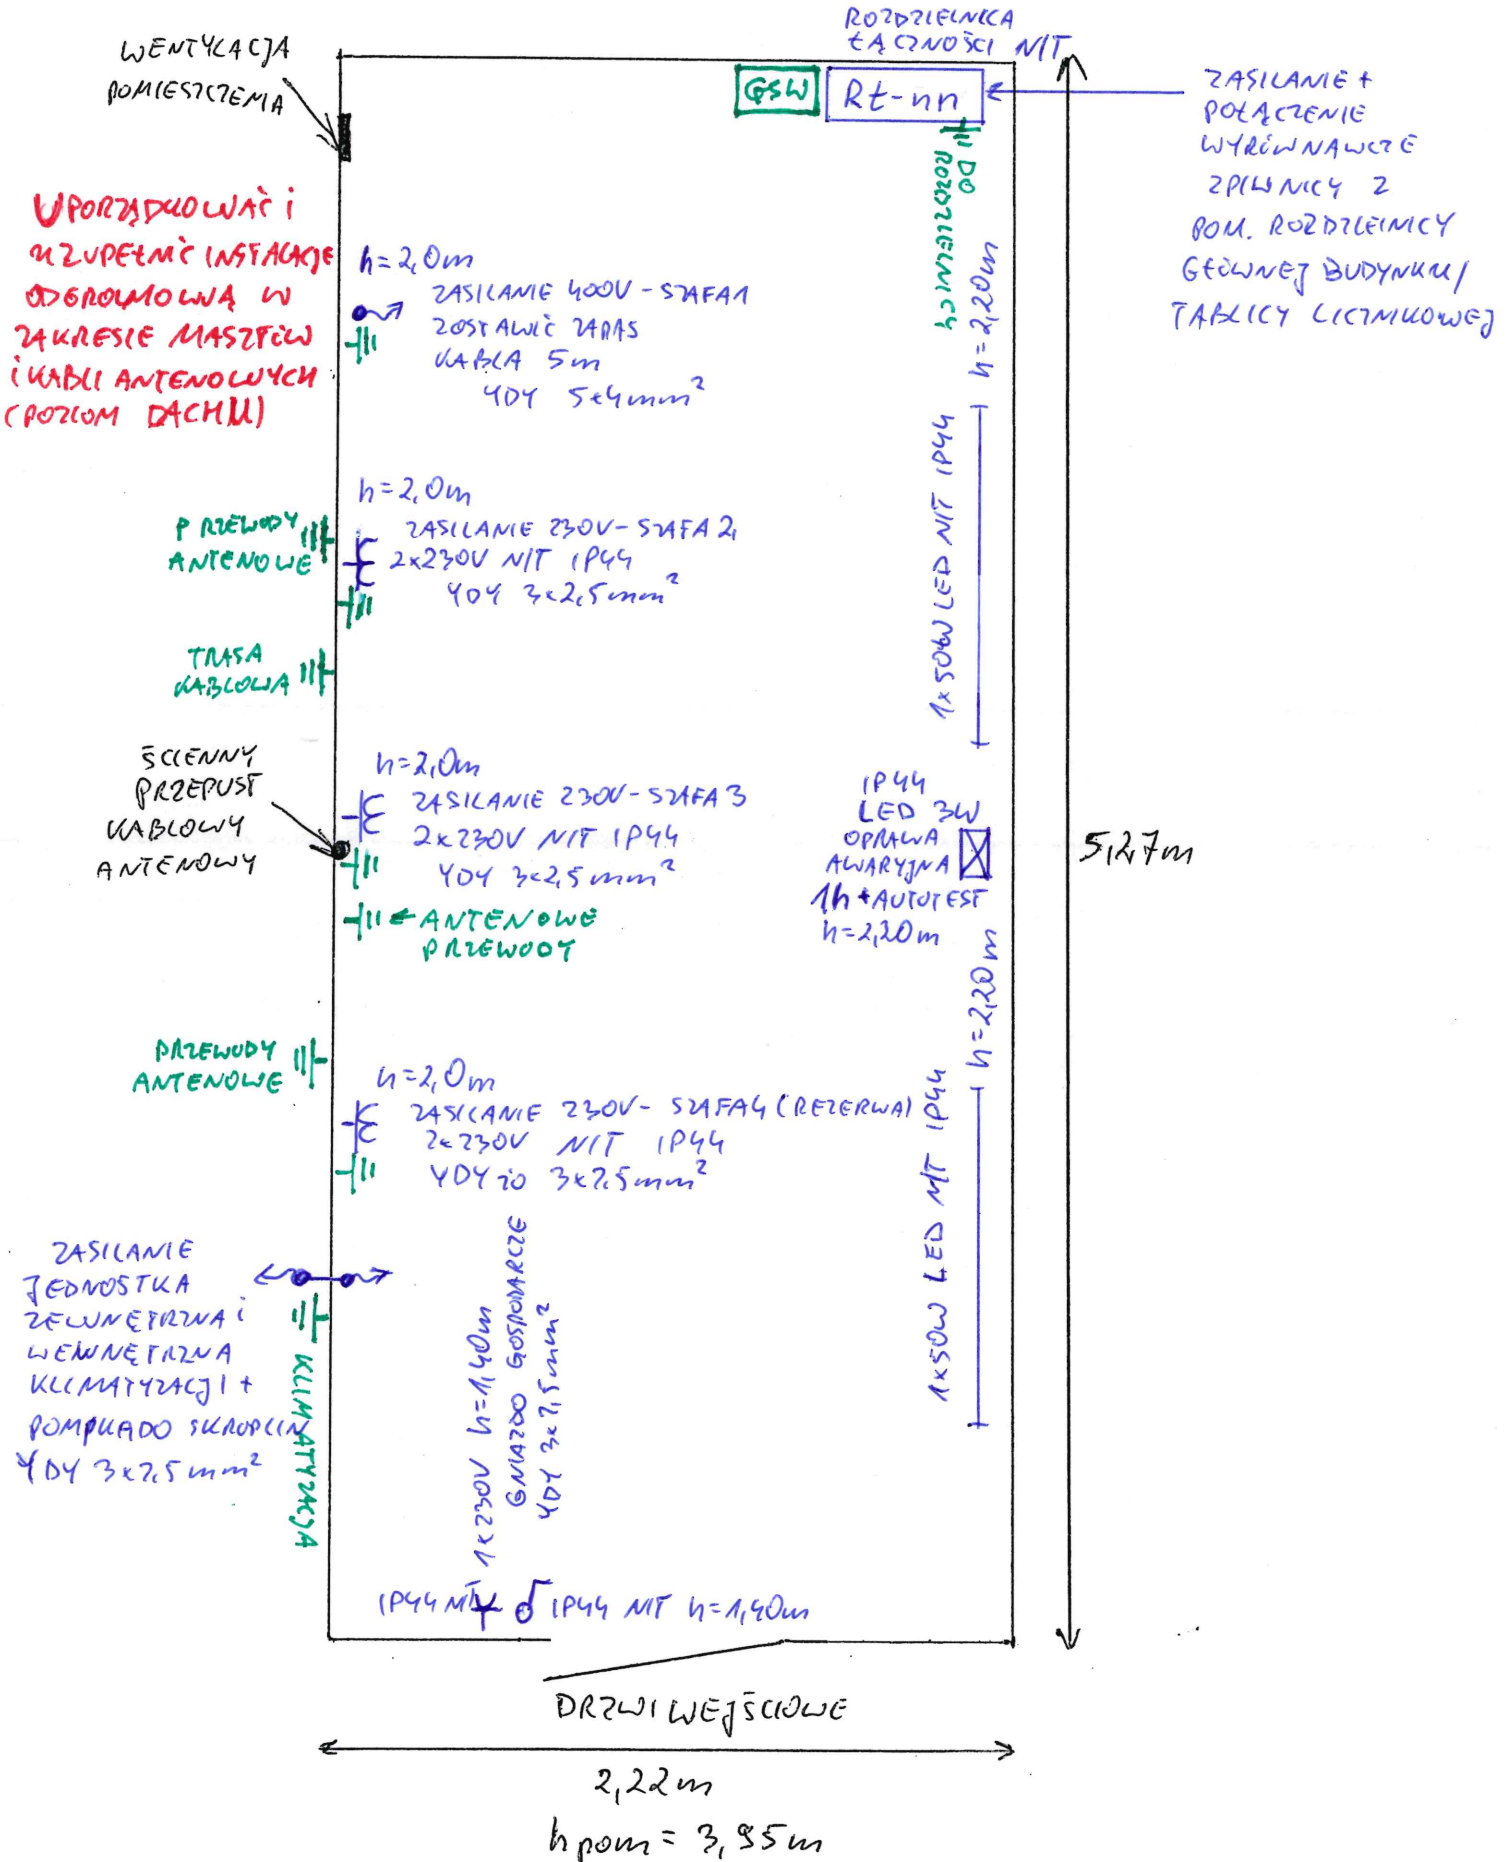 ROZDZIELNICA
ŁĄCZNOŚCI N/T
WENTYLACJA
POMIESZCZENIA
GSW
Rt-nn
ZASILANIE +
POŁĄCZENIE
WYRÓWNAWCZE
Z PIWNICY Z
POM. ROZDZIELNICY
GŁÓWNEJ BUDYNKU/
TABLICY LICZNIKOWEJ
DO
ROZDZIELNICY
h=2,20m
UPORZĄDKOWAĆ i
UZUPEŁNIĆ INSTALACJE
ODGROMOWĄ W
ZAKRESIE MASZTÓW
i KABLI ANTENOWYCH
(POZIOM DACHU)
h=2,0m
ZASILANIE 400V - SZAFA 1
ZOSTAWIĆ ZAPAS
KABLA 5m
YDY 5x4mm²
1x50W LED N/T IP44
h=2,0m
PRZEWODY
ANTENOWE
ZASILANIE 230V - SZAFA 2,
2x230V N/T IP44
YDY 3x2,5mm²
TRASA
KABLOWA
ŚCIENNY
PRZEPUST
KABLOWY
ANTENOWY
h=2,0m
ZASILANIE 230V - SZAFA 3
2x230V N/T IP44
YDY 3x2,5mm²
IP44
LED 3W
OPRAWA
AWARYJNA
1h + AUTOTEST
h=2,20m
5,27m
ANTENOWE
PRZEWODY
h=2,20m
PRZEWODY
ANTENOWE
h=2,0m
ZASILANIE 230V - SZAFA 4 (REZERWA)
2x230V N/T IP44
YDY żo 3x2,5mm²
1x50W LED N/T IP44
ZASILANIE
JEDNOSTKA
ZEWNĘTRZNA i
WEWNĘTRZNA
KLIMATYZACJI +
POMPKA DO SKROPLIN
YDY 3x2,5mm²
KLIMATYZACJA
1x230V h=1,40m
GNIAZDO GOSPODARCZE
YDY 3x2,5mm²
IP44 N/T
IP44 N/T h=1,40m
DRZWI WEJŚCIOWE
2,22m
h pom = 3,95m